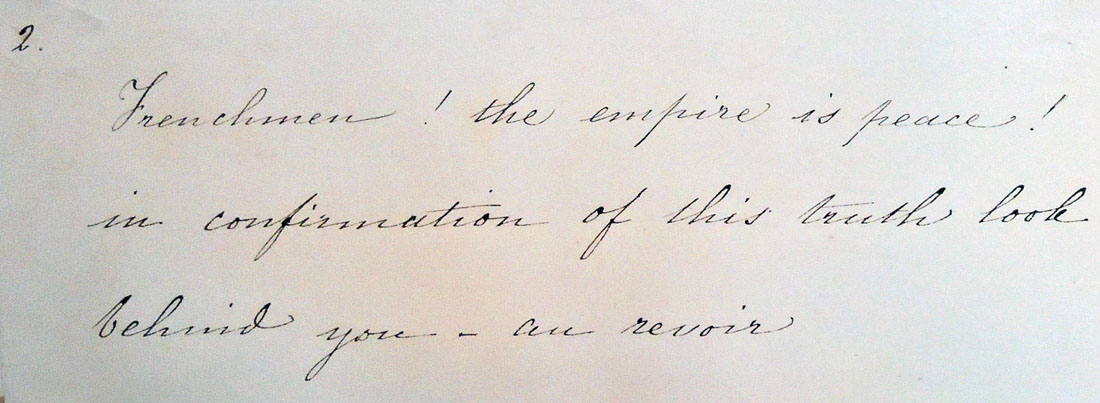 2.
Frenchmen ! the empire is peace !
in confirmation of this truth look
behind you - au revoir